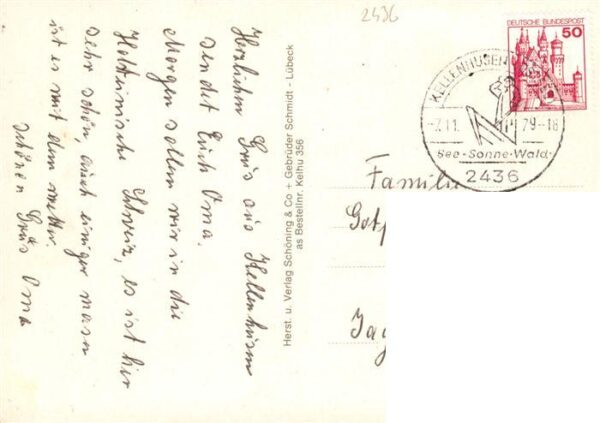 2436
Herzlichen Grüs aus Kellenhusen
sendet Euch Oma.
Morgen sollen wir in die
Holsteinische Schweiz, es ist hier
sehr schön, auch einiger masen
ist es mit dem Wetter.
schönen Grüs Oma
Herst. u. Verlag Schöning & Co + Gebrüder Schmidt - Lübeck
as Bestellnr. Kelhu 356
DEUTSCHE BUNDESPOST
50
KELLENHUSEN
-7.11. 79-18
See-Sonne-Wald
2436
Famili